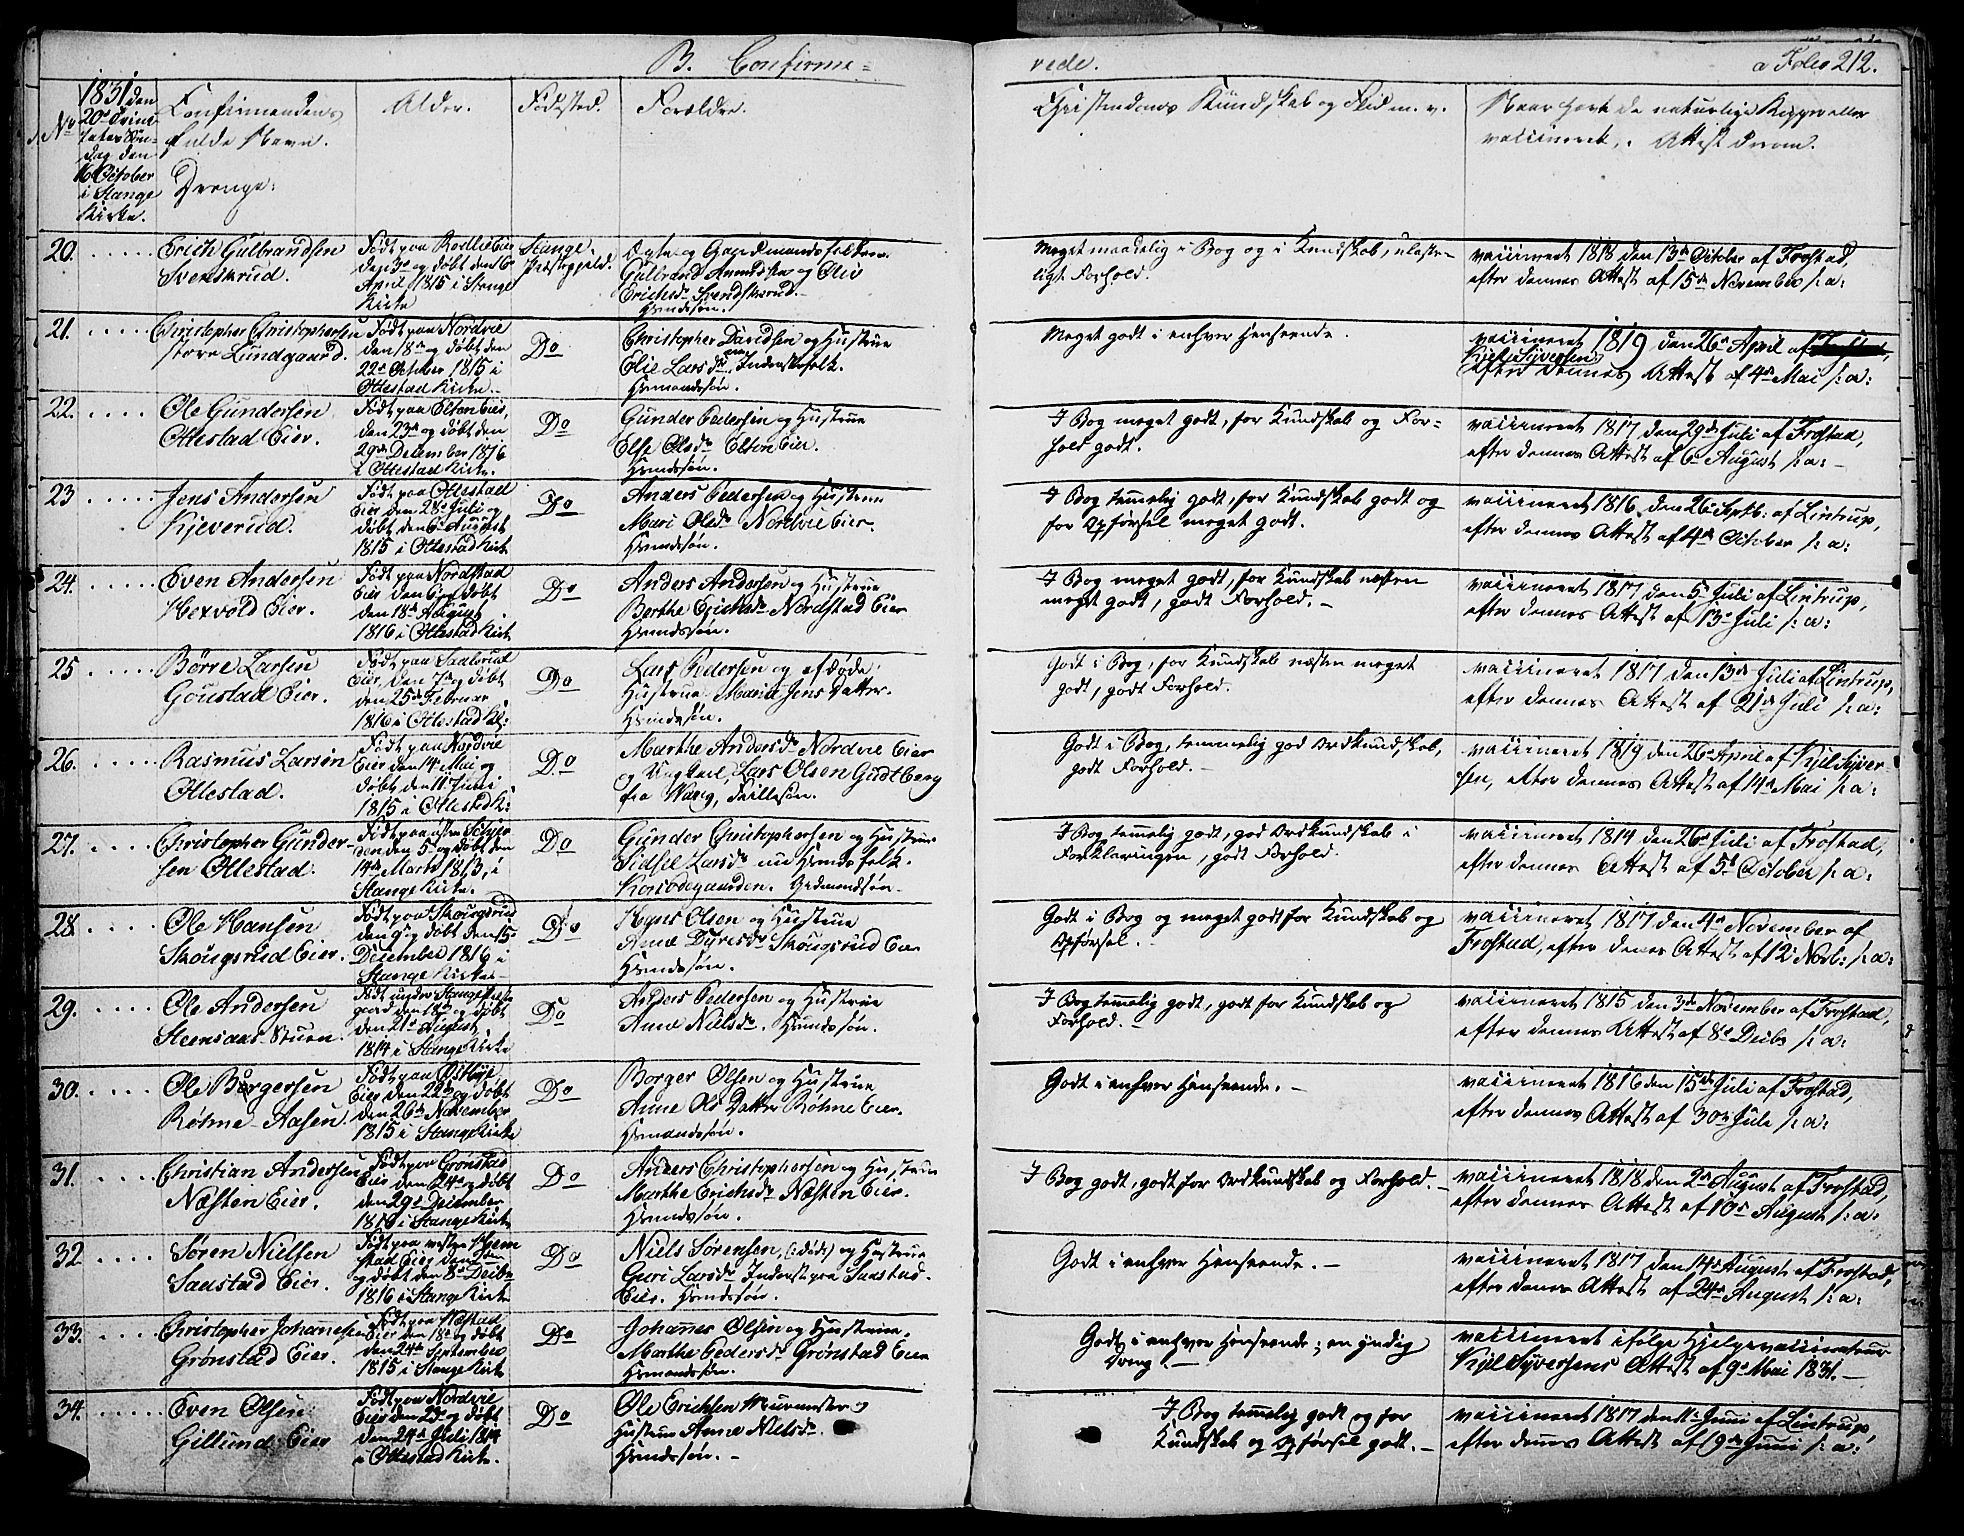 B. Confirme=
1831 den 20de Trinitatis Søndag den 16 October i Stange Kirke.
No
Confirmandens fulde Navn. Drenge:
Alder.
Fødested.
Forældre.
20. Erich Gulbrandsen
Svenskrud.
Født paa
den 3e og døbt den 6e
April 1815 i Stange
Kirke
Stange
Præstegjeld.
Gulbrand Amundsen og Olia
Erichsdr Svendskrud.
21. Christopher Christophersen
store Lundgaard.
Født paa Nordvie
den 18de og døbt den
22de October 1815 i
Ottestad Kirke.
Do
Christopher Davidsen og Hustrue
Elie Larsdr, Inderstfolk.
22. Ole Gundersen
Ottestad Eier.
Født paa Elton Eier,
den 23de og døbt den
29de December 1816
i Ottestad Kirke.
Do
Gunder Pedersen og Hustrue
Else Olsdr Elton Eier.
23 Jens Andersen
Kjeverud.
Født paa Ottestad
Eier den 28de Juli og
døbt den 6te August
1815 i Ottestad Kirke
Do
Anders Pedersen og Hustrue
Mari Olsdr Nordvie Eier.
24. Even Andersen
Hexvold Eier.
Født paa Nordstad
Eier den 6te og døbt
den 18de August
1816 i Ottestad Kirke
Do
Anders Andersen og Hustrue
Berthe Erichsdr Nordstad Eier
25 Børre Larsen
Goustad Eier.
Født paa Saalerud
Eier, den 7de og døbt
den 25de Februar
1816 i Ottestad K:
Do
Lars Pedersen og afdøde
Hustrue Marie Jens Datter.
26. Rasmus Larsen
Ottestad.
Født paa Nordvie
Eier den 14de Mai og
døbt den 11te Juni
1815 i Ottestad K:
Do
Marthe Andersdr Nordvie Eier
og Ungkarl, Lars Olsen Gudtberg
fra Wang,
27. Christopher Gunder-
sen Ottestad.
den 5te og døbt den
14de Marts 1813, i
Stange Kirke.
Do
Gunder Christophersen og Hustrue
Sidsel Larsdr
Korsødegaarden.
28. Ole Hansen
Skougsrud Eier.
Født paa Skougsrud
den 9de og døbt den 15de
December 1816 i
Stange Kirke
Do
Hans Olsen og Hustrue
Anne Dyresdr Skougsrud Eier
29. Ole Andersen
Steensaas-Stuen.
den 21de August
1814 i Stange Kirke
Do
Anders Pedersen og Hustrue
Anne Nielsdr.
30. Ole Børgersen
Røhne-Aasen.
Eier den 22de og døbt
den 26de November
1815 i Stange Kirke
Do
Borger Olsen og Hustrue
Anne Ols Datter Røhne Eier.
31. Christian Andersen
Næsten Eier.
Født paa Grønstad
Eier den 24de og døbt
den 29de December
1816 i Stange Kirke
Do
Anders Christophersen og Hustrue
Marthe Erichsdr Næsten Eier.
32 Søren Nielsen
Saastad Eier.
og døbt den 8de Decbr
1816 i Stange Kirke
Do
Niels Sørensen, (: død :) og Hustrue
Guri Larsdr Inderst paa Saastad
Eier.
33. Christopher Johannesen
Grønstad Eier.
Eier den 18de og døbt
den 24de September
1815 i Stange Kirke
Do
Johannes Olsen og Hustrue
Marthe Pedersdr Grønstad Eier
34. Even Olsen
Gillund Eier
Født paa Nordvie
Eier den 23de og døbt
den 24de Juli 1814
i Ottestad Kirke.
Do
Ole Erichsen Murmester og
Hustrue Anne Nielsdr.
vede.
a Folio 212.
Christendoms Kundskab og Flid m. v.
Naar havt de naturlige Kopper eller
vaccineret, Attest derom.
Meget maadelig i Bog og i Kundskab, ulaste-
ligt Forhold.
vaccineret 1818 den 13de October af Frostad,
efter dennes Attest af 15de November s: a:
Meget godt i enhver Henseende.
vaccineret 1819 den 26de April af
Kjel Syversen
efter dennes Attest af 4de Mai s: a:
I Bog meget godt, for Kundskab og For=
hold godt.
vaccineret 1817 den 29de Juli af Frostad,
efter dennes Attest af 6te August s: a: -
I Bog temmelig godt, for Kundskab godt og
for Opførsel meget godt.
vaccineret 1816 den 26de Septb: af Lintrup,
efter dennes Attest af 4de October s: a:
I Bog meget godt, for Kundskab næsten
meget godt, godt Forhold. -
vaccineret 1817 den 5te Juli af Lintrup,
efter dennes Attest af 13de Juli s: a:
Godt i Bog, for Kundskab næsten meget
godt, godt Forhold.
vaccineret 1817 den 13de Juli af Lintrup,
efter dennes Attest af 21de Juli s: a:
Godt i Bog, temmelig god Ordkundskab,
godt Forhold. -
vaccineret 1819 den 26de April af Kjel Syver-
sen, efter dennes Attest af 14de Mai s: a:
I Bog temmelig godt, god Ordkundskab i
Forklaringen, godt Forhold.
vaccineret 1814 den 26de Juli af Frostad,
efter dennes Attest af 5te October s: a:
Godt i Bog og meget godt for Kundskab og
Opførsel. -
vaccineret 1817 den 4de November af
Frostad, efter dennes Attest af 12te Novb: s: a:
I Bog temmelig godt, godt for Kundskab og
Forhold. -
vaccineret 1815 den 3die November af Frostad,
efter dennes Attest af 8de Decbr s: a:
Godt i enhver Henseende. -
vaccineret 1816 den 15de Juli af Frostad,
efter dennes Attest af 30te Juli s: a:
I Bog godt, godt for Ordkundskab og Forhold. -
vaccineret 1818 den 2den August af Frostad,
efter dennes Attest af 10de August s: a:
Godt i enhver Henseende. -
vaccineret 1817 den 14de August af Frostad,
efter dennes Attest af 24de August s: a:
Godt i enhver Henseende; en yndig
Dreng. -
vaccineret ifølge Hjelpevaccinateur
Kjel Syversens Attest af 9de Mai 1831. -
I Bog temmelig godt og for
Kundskab og Opførsel godt. -
vaccineret 1817 den 1te Juni af Lintrup,
efter dennes Attest af 9de Juni s: a: